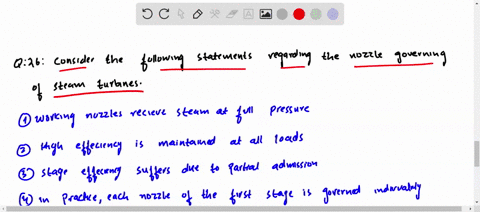 Q:26: Consider the following statements regarding the nozzle governing
of steam turbanes.
① Working nozzles recieve steam at full pressure
② High effeciency is maintained at all loads
③ Stage effeciency suffers due to partial admission
④ in Practice, each nozzle of the first stage is governed indarvately